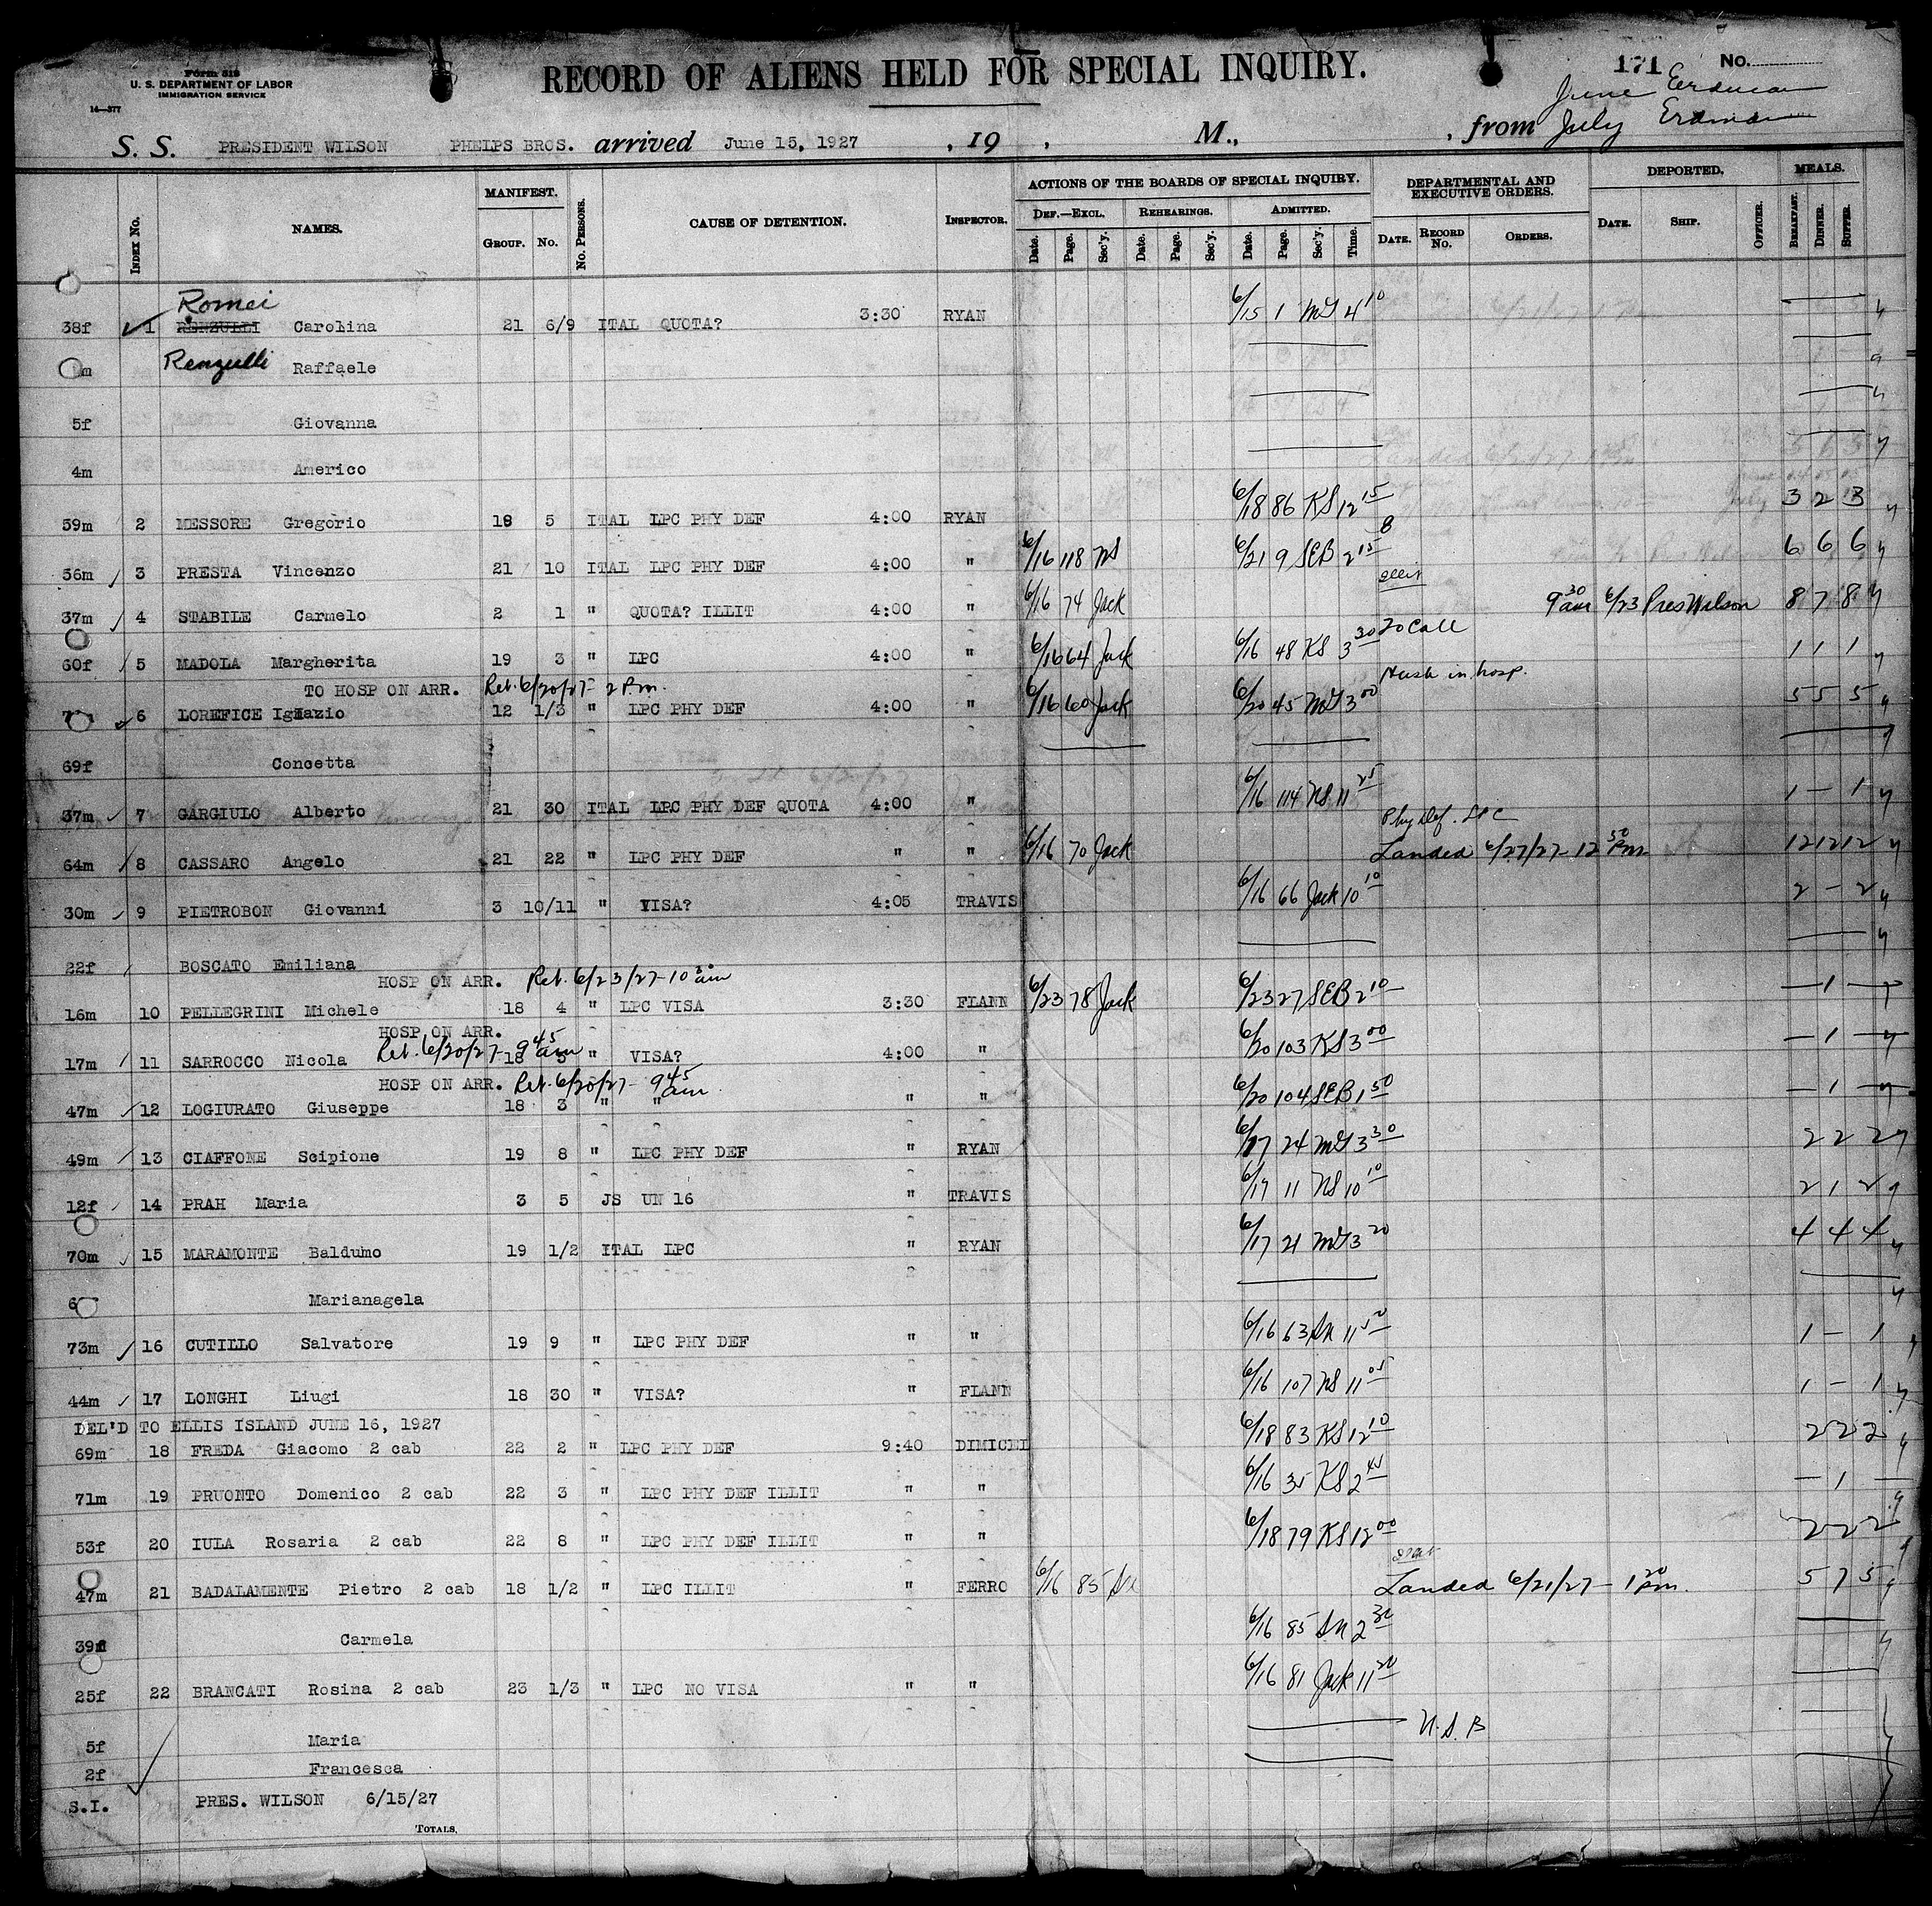 Form 519
U. S. DEPARTMENT OF LABOR
IMMIGRATION SERVICE
14—577
RECORD OF ALIENS HELD FOR SPECIAL INQUIRY.
171 No.
June Erdman
S. S. PRESIDENT WILSON PHELPS BROS. arrived June 15, 1927 , 19 , M., , from July Erdman
INDEX No. NAMES. MANIFEST. GROUP. No. No. PERSONS. CAUSE OF DETENTION. INSPECTOR. ACTIONS OF THE BOARDS OF SPECIAL INQUIRY. DEF.—EXCL. Date. Page. Sec'y. REHEARINGS. Date. Page. Sec'y. ADMITTED. Date. Page. Sec'y. Time. DEPARTMENTAL AND EXECUTIVE ORDERS. DATE. RECORD No. ORDERS. DEPORTED. DATE. SHIP. OFFICER. MEALS. BREAKFAST. DINNER. SUPPER.
Romei
38f 1 RENZULLI Carolina 21 6/9 ITAL QUOTA? 3:30 RYAN 6/15 1 MG 4 10
m Renzulli Raffaele
5f Giovanna
4m Americo
59m 2 MESSORE Gregorio 18 5 ITAL LPC PHY DEF 4:00 RYAN 6/18 86 KS 12 15 3 2 3
56m 3 PRESTA Vincenzo 21 10 ITAL LPC PHY DEF 4:00 " 6/16 118 NS 6/21 9 SEB 2 15 6 6 6
37m 4 STABILE Carmelo 2 1 " QUOTA? ILLIT 4:00 " 6/16 74 Jack 9 30 am 6/23 Pres Wilson 8 7 8
60f 5 MADOLA Margherita 19 3 " LPC 4:00 " 6/16 64 Jack 6/16 48 KS 3 30 To Call 1 1 1
TO HOSP ON ARR. Ret. 6/20/27- 2 P.m. in hosp.
6 LOREFICE Ignazio 12 1/3 " LPC PHY DEF 4:00 " 6/16 60 Jack 6/20 45 MG 3 00 5 5 5
69f Concetta
37m 7 GARGIULO Alberto 21 30 ITAL LPC PHY DEF QUOTA 4:00 " 6/16 114 NS 11 25 1 - 1
Phy Def. LPC
64m 8 CASSARO Angelo 21 22 " LPC PHY DEF " " 6/16 70 Jack Landed 6/27/27- 12 50 Pm 12 12 12
30m 9 PIETROBON Giovanni 3 10/11 " VISA? 4:05 TRAVIS 6/16 66 Jack 10 10 2 - 2
22f BOSCATO Emiliana
HOSP ON ARR. Ret. 6/23/27-10 30 am
16m 10 PELLEGRINI Michele 18 4 " LPC VISA 3:30 FLANN 6/23 78 Jack 6/23 27 SEB 2 10 - 1 -
HOSP ON ARR. Ret. 6/20/27- 9 45 am
17m 11 SARROCCO Nicola 18 5 " VISA? 4:00 " 6/20 103 KS 3 00 - 1 -
HOSP ON ARR. Ret. 6/20/27- 9 45 am
47m 12 LOGIURATO Giuseppe 18 3 " " " " 6/20 104 SEB 1 50 - 1 -
49m 13 CIAFFONE Scipione 19 8 " LPC PHY DEF " RYAN 6/17 24 MG 3 30 2 2 2
12f 14 PRAH Maria 3 5 JS UN 16 " TRAVIS 6/17 11 NS 10 10 2 1 2
70m 15 MARAMONTE Baldumo 19 1/2 ITAL LPC " RYAN 6/17 21 MG 3 20 4 4 4
6 Marianagela
73m 16 CUTILLO Salvatore 19 9 " LPC PHY DEF " " 6/16 63 11 50 1 - 1
44m 17 LONGHI Liugi 18 30 " VISA? " FLANN 6/16 107 NS 11 05 1 - 1
DEL'D TO ELLIS ISLAND JUNE 16, 1927
69m 18 FREDA Giacomo 2 cab 22 2 " LPC PHY DEF 9:40 DIMICEL 6/18 83 KS 12 10 2 2 2
71m 19 PRUONTO Domenico 2 cab 22 3 " LPC PHY DEF ILLIT " " 6/16 35 KS 2 45 - 1 -
53f 20 IULA Rosaria 2 cab 22 8 " LPC PHY DEF ILLIT " " 6/18 79 KS 12 00 2 2 2
47m 21 BADALAMENTE Pietro 2 cab 18 1/2 " LPC ILLIT " FERRO 6/16 85 Landed 6/21/27- 1 20 pm. 5 7 5
39f Carmela 6/16 85 2 30
25f 22 BRANCATI Rosina 2 cab 23 1/3 " LPC NO VISA " " 6/16 81 Jack 11 20
5f Maria U.S.B
2f Francesca
S.I. PRES. WILSON 6/15/27
TOTALS.